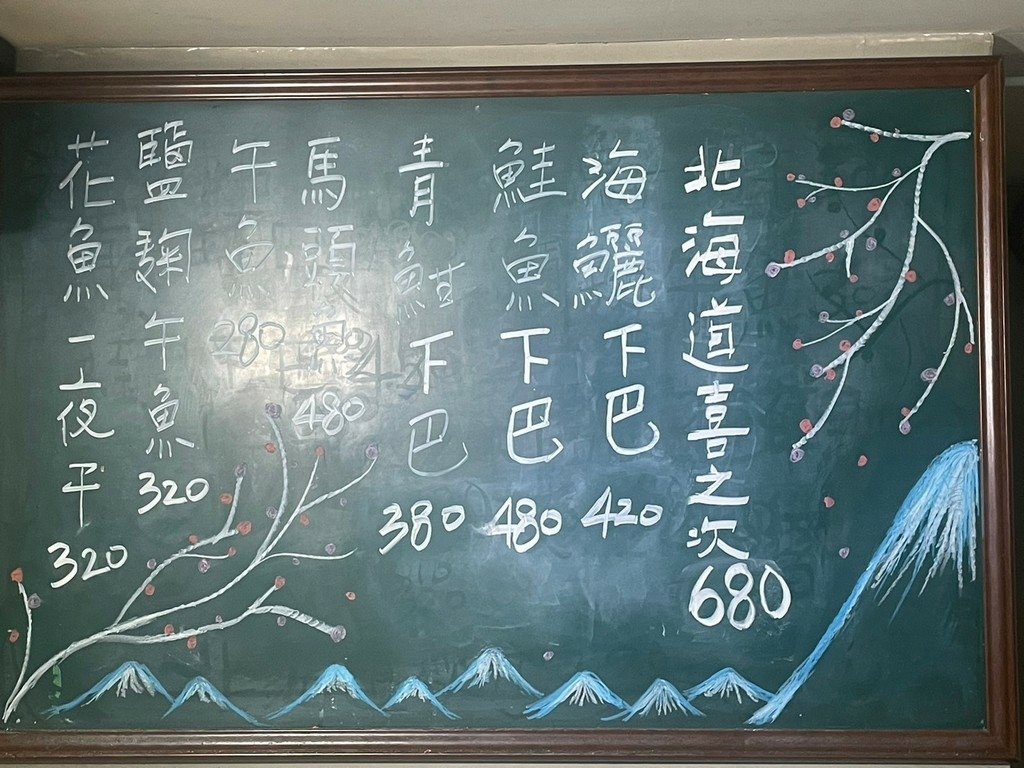 北海道喜之次680
海鱺下巴420
鮭魚下巴480
青魽下巴380
馬頭魚480
午魚280
鹽麴午魚320
花魚一夜干320